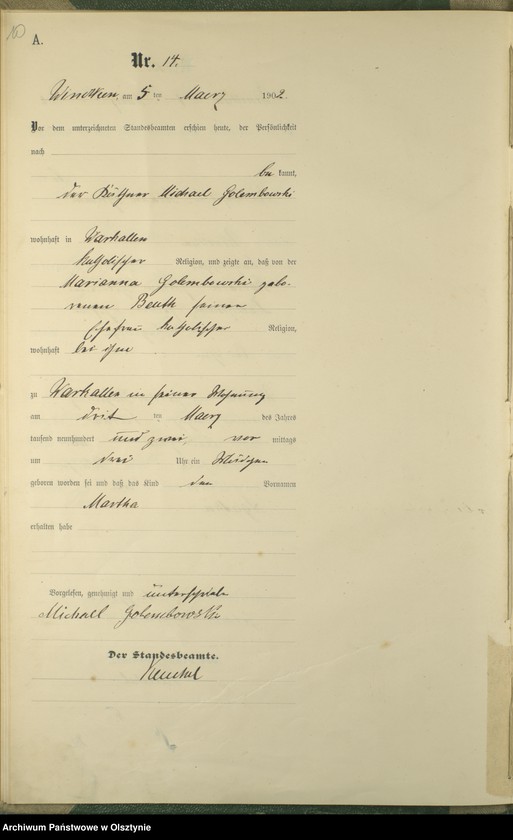 A.
Nr. 14.
am 5 ten Maerz 1902
Vor dem unterzeichneten Standesbeamten erschien heute, der Persönlichkeit
nach
be kannt,
der Michael Golembowski
wohnhaft in Warkallen
katholischer Religion, und zeigte an, daß von der
Marianna Golembowski gebo-
renen Beuth seiner
Ehefrau katholischer Religion,
wohnhaft bei ihm
zu Warkallen in seiner Wohnung
am ten Maerz des Jahres
tausend neunhundert und zwei, vor mittags
um drei Uhr ein Mädchen
geboren worden sei und daß das Kind den Vornamen
Martha
erhalten habe
Vorgelesen, genehmigt und unterschrieben
Michael Golembowski
Der Standesbeamte.
Archiwum Państwowe w Olsztynie